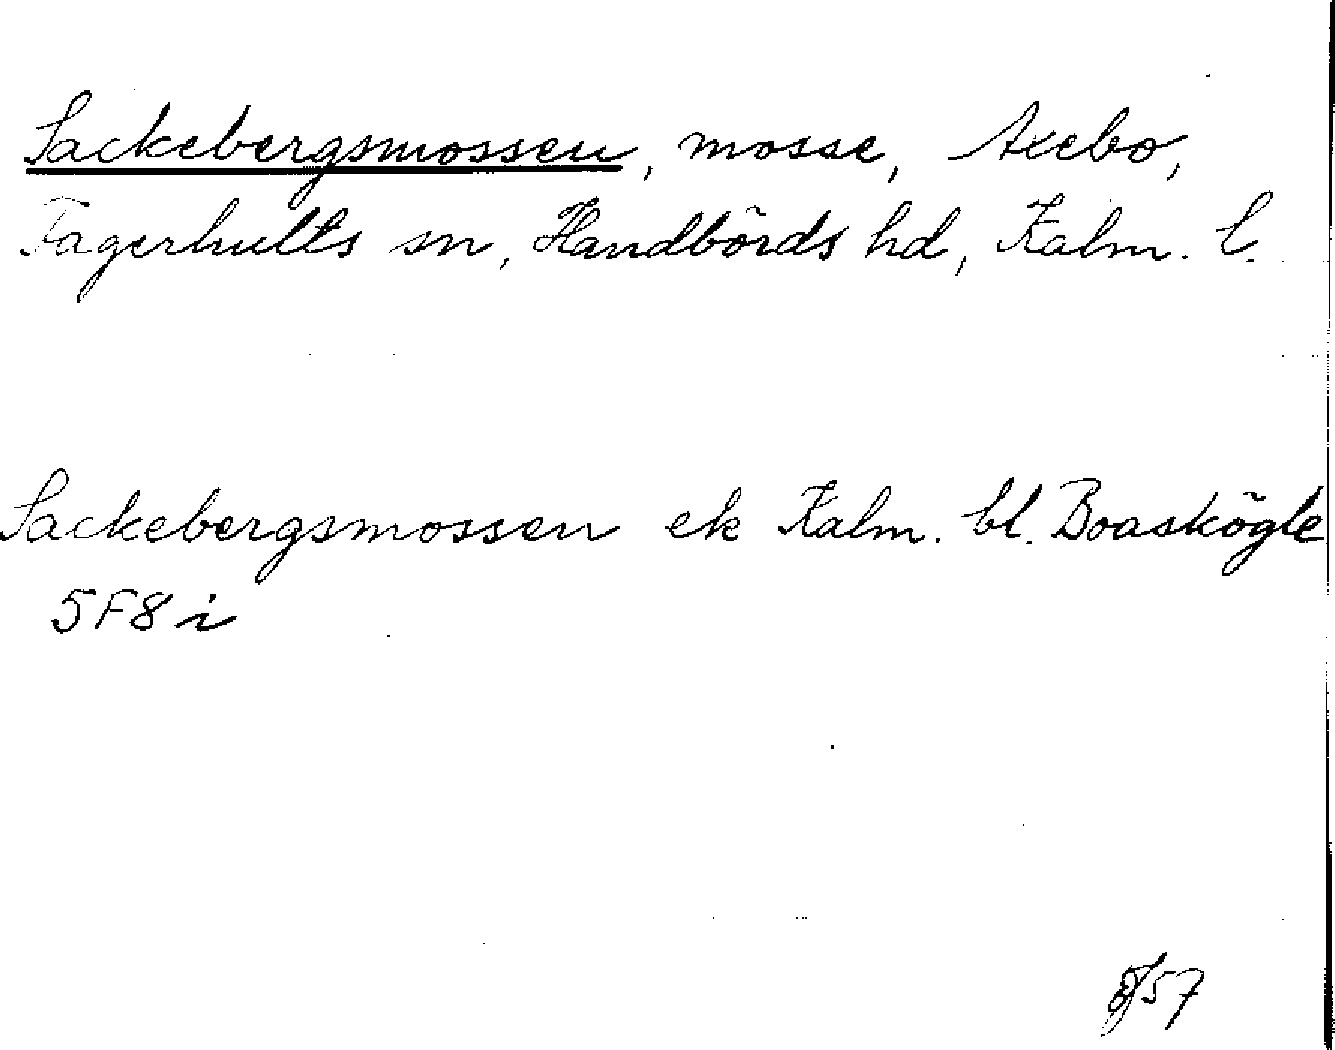 Sackebergsmossen, mosse, Axebo,
Fagerhults sn, Handbörds hd, Kalm. l.
Sackebergsmossen ek Kalm. bl. Boaskögle
5F8i
57